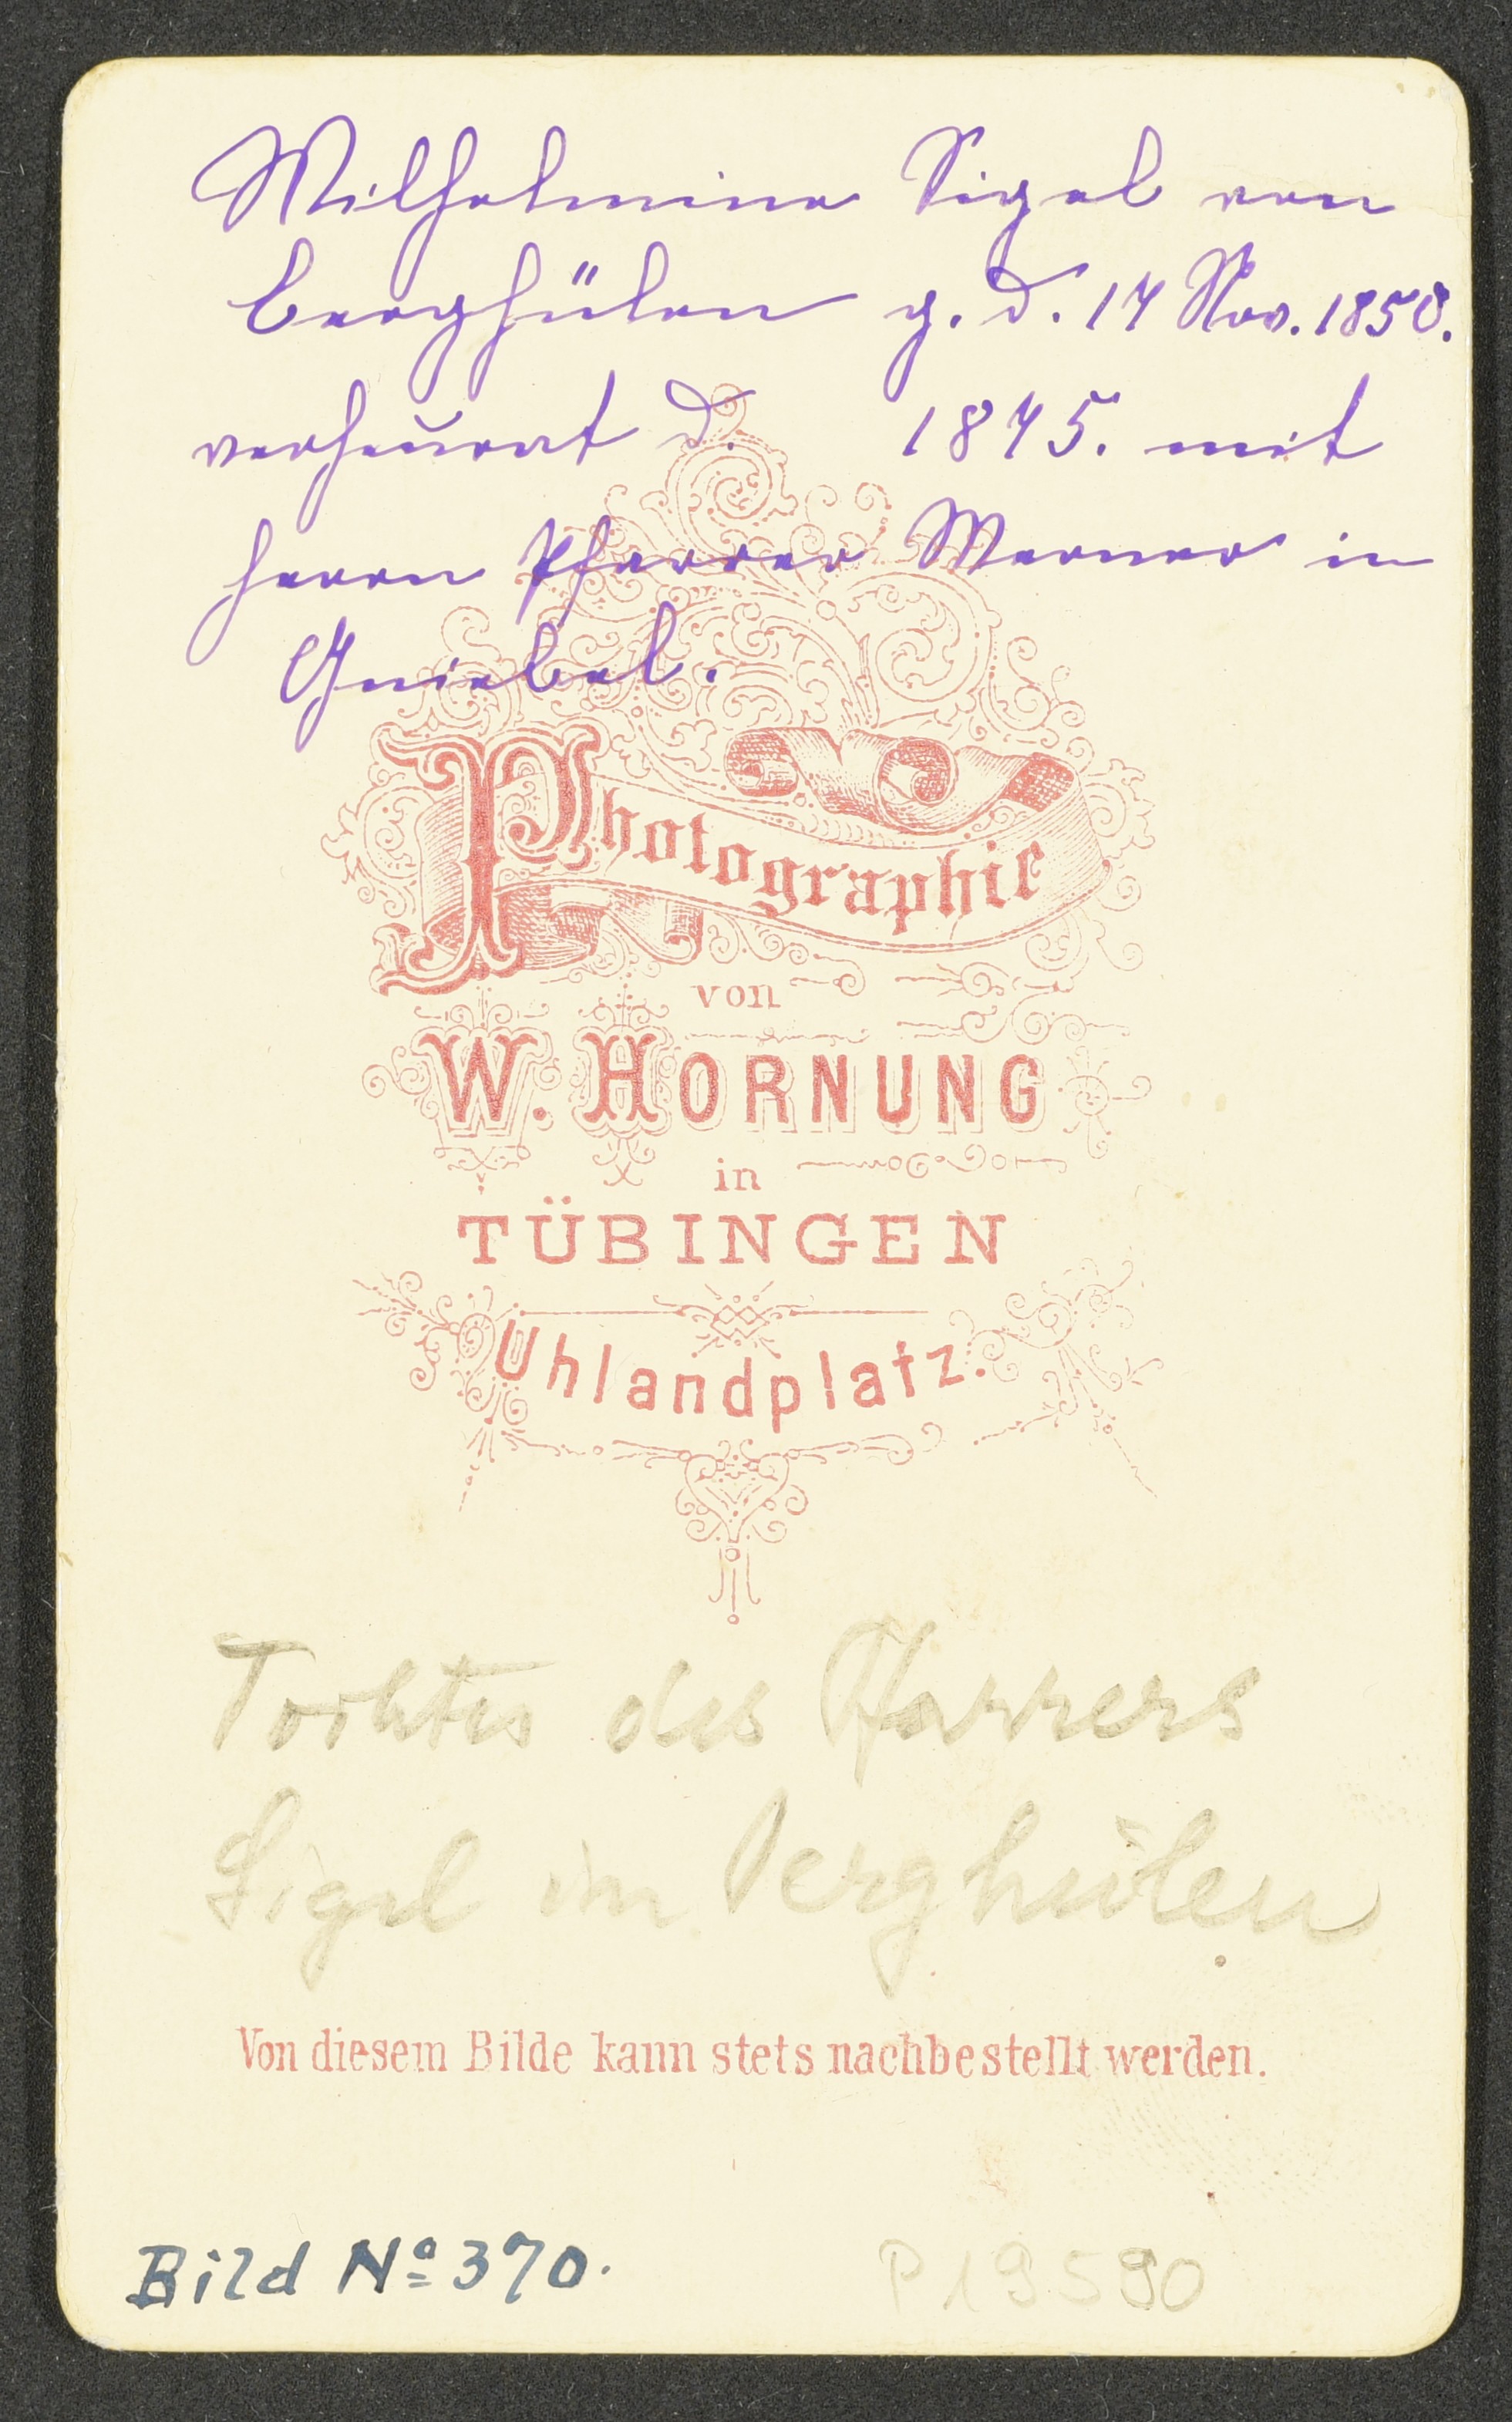 Wilhelmine Sigel von
Berghülen g. d. 17 Nov. 1850.
verheurat d. 1875. mit
Herrn Pfarrer Werner in
Gniebel.
Photographie
von
W. HORNUNG
in
TÜBINGEN
Uhlandplatz.
Tochter des Pfarrers
Sigel in Berghülen
Von diesem Bilde kann stets nachbestellt werden.
Bild No 370.
P 19590